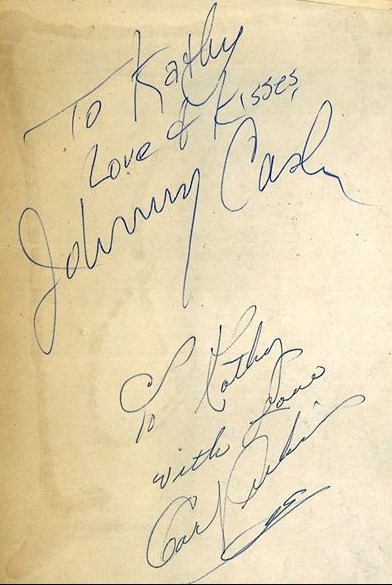 To Kathy
Love & Kisses,
Johnny Cash
To Kathy
with Love
Carl Perkins